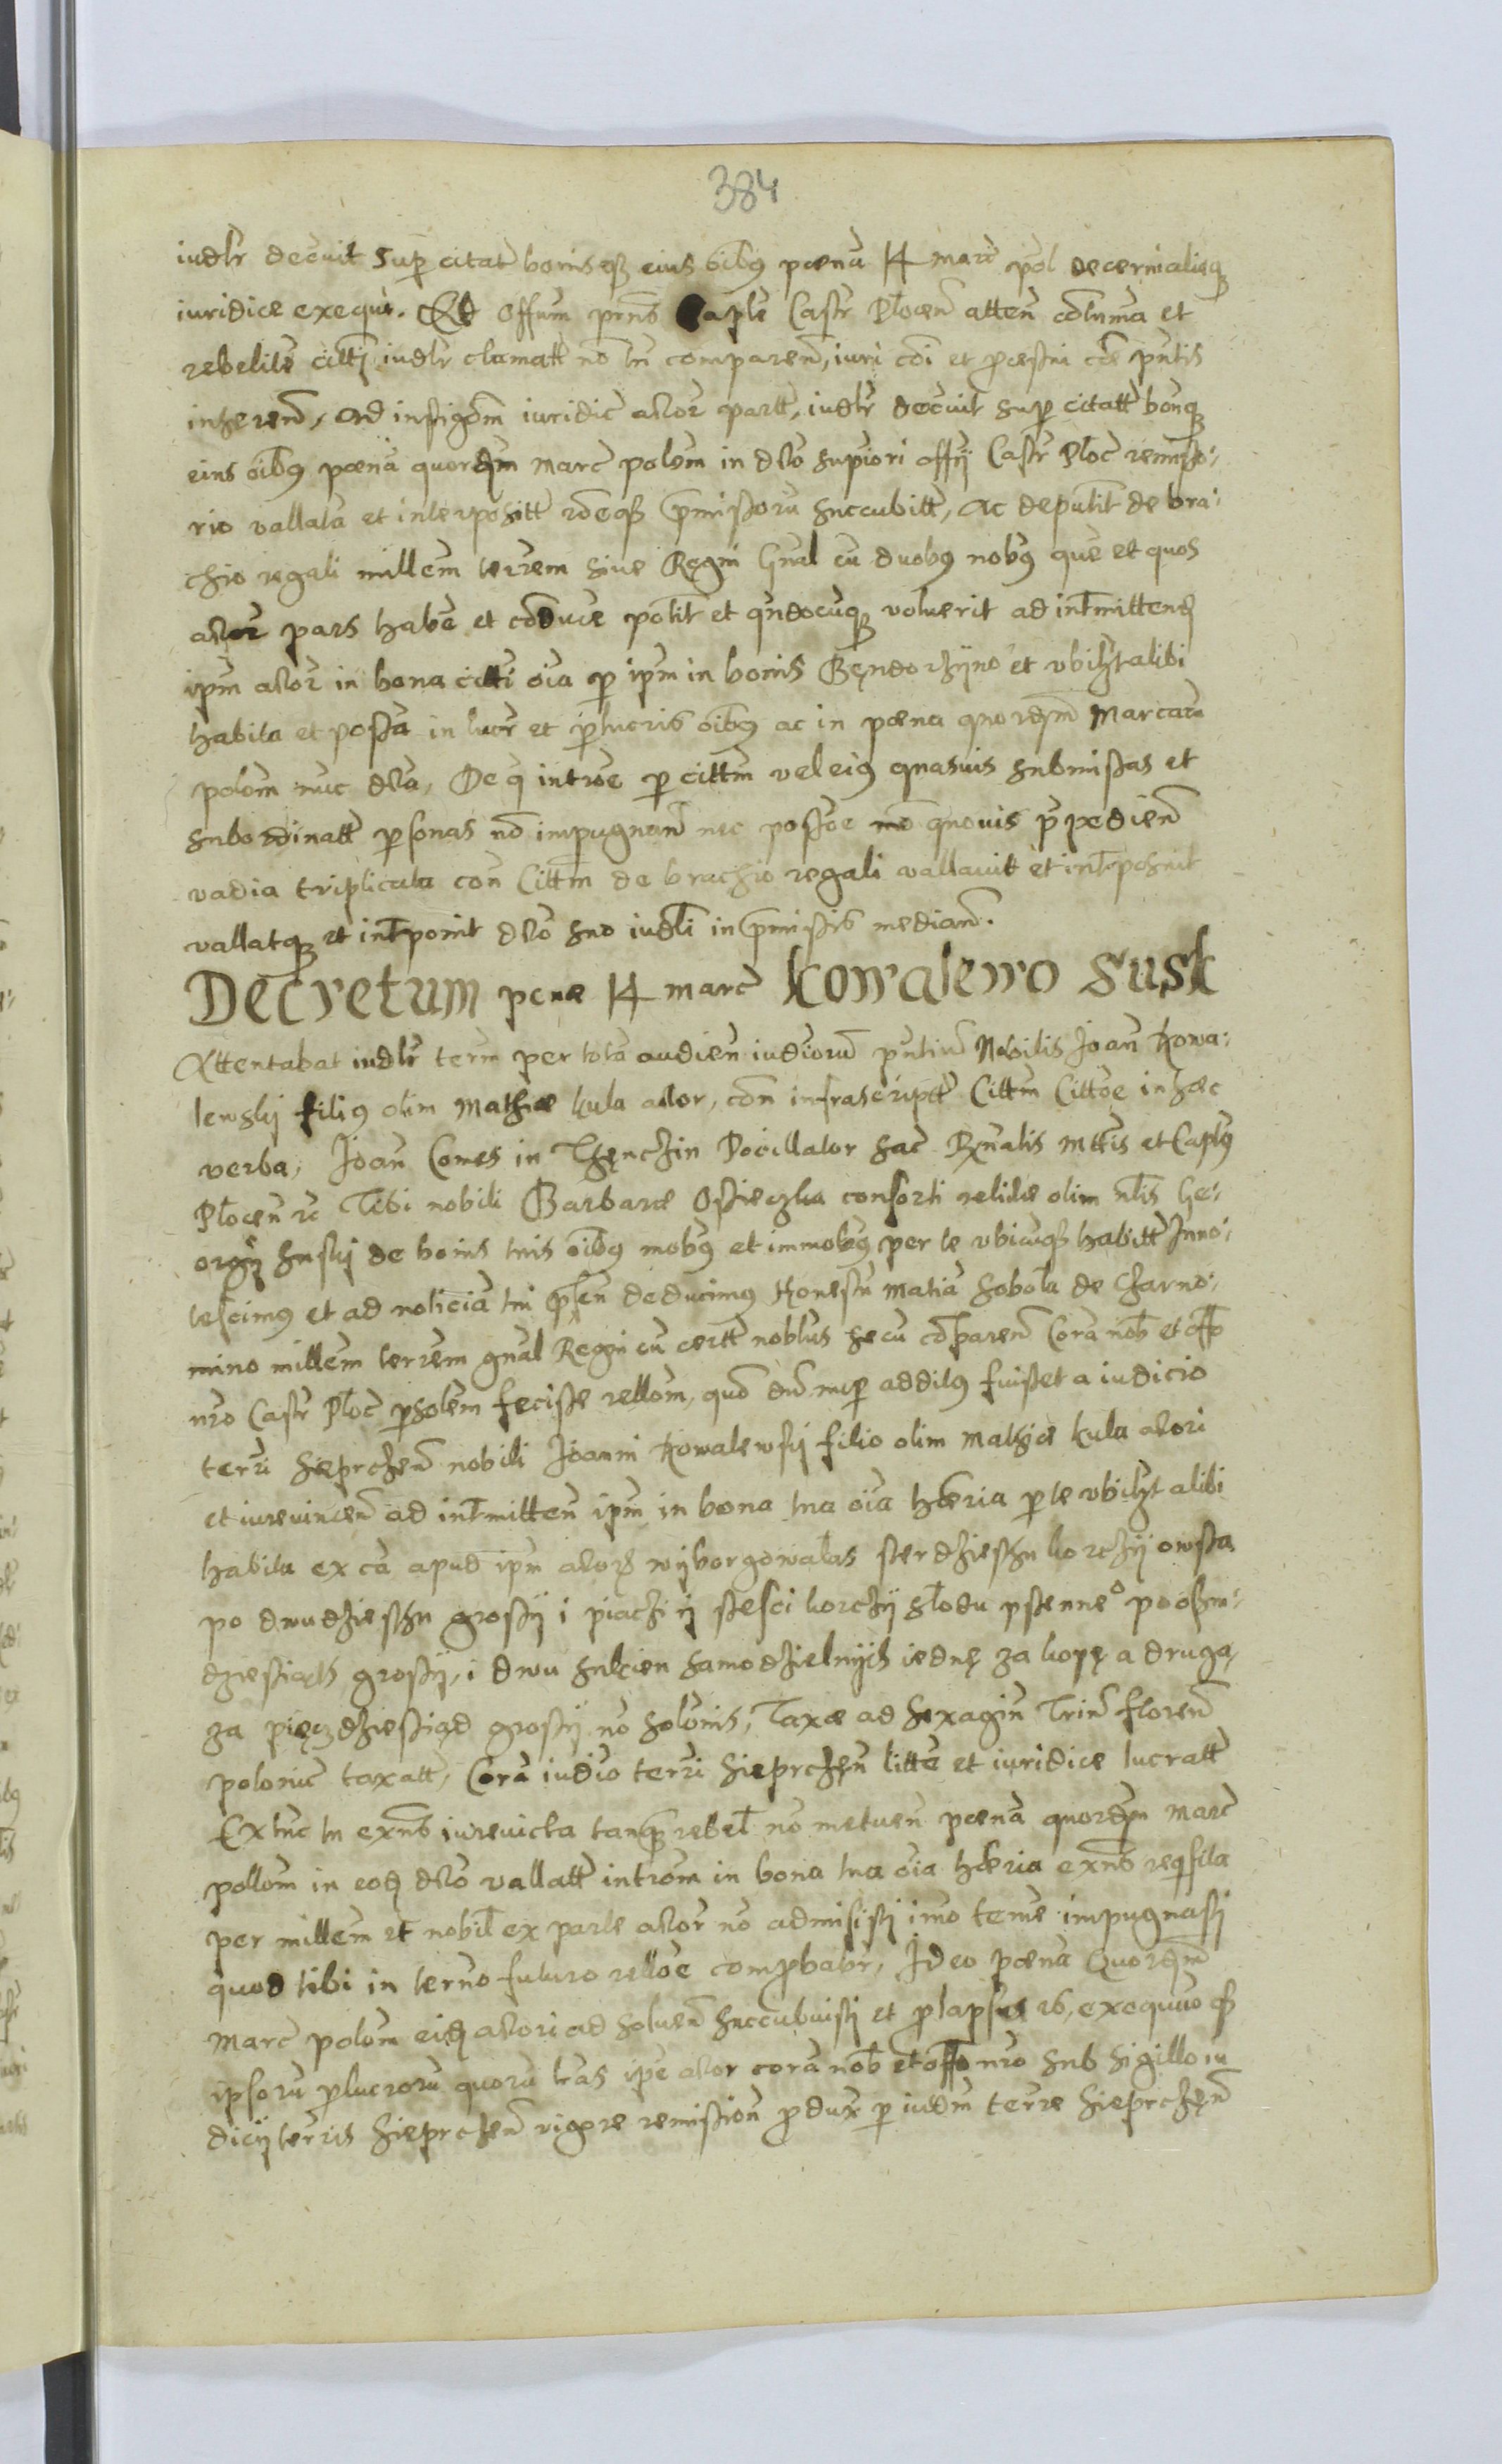 384
iudlr decuit Super citat bonisq eius oibus poena 14 marc pol decernialisq
iuridice exequi. Et Offum prns Caplt Castr Plocen atten coltuma et
rebelite citti iudlr clamatt no tn comparen, iuri coi et processui coe puntis
inheren, Ad instigoem iuridic actor partt, iudlr decuit super citatt bonq
eius oibus poena quordem marc polom in dcto supiori offii Castr Ploc remisso:
rio vallata et interpositt rõeq premissoru succubitt, Ac deputit de bra:
chio regali millem terrem sive Regni Gnal cu duobus nobus que et quos
actor pars habe et coduce potit et qndocuq voluerit ad intmittend
ipm actor in bona citti oia p ipm in bonis Bendorzyno et ubilzt alibi
habita et possa in lucr et plucris oibus ac in poena quordem Marcaru
polom nuc dcta, De q introe p cittm vel eius quasvis submissas et
subordinatt personas no impugnan nec possoe mo quovis ppedien
vadia triplicata con Cittm de brachio regali vallavit et intposuit
vallatq et intponit dcto suo iudli in premissis median.
Decretum pene 14 marc Kowalewo Susk
Attentabat iudlr term per tota audien iudiorum puntium Nobilis Joan Kowa:
lewski filius olim Mathiae Kula actor, con infrascriptt Cittm Cittoe in haec
verba, Joan Comes in Thenczin Pocillator Sac Rgnalis Mttis et Caplus
Plocen rc Tibi nobili Barbarae Ostieczka consorti relictae olim nlis Ge:
orgii Suski de bonis tuis oibus mobus et immobus per te ubicuq habitt Inno:
tescimus et ad noticia tui plen deducimus Honestu Matia Sobola de Czarno:
mino millem terrem gnal Regni cu certt noblus secu coparen Cora nob et offo
nro Castr Ploc psolem fecisse rellom, quo dum nup additus fuisset a iudicio
terri Sieprczen nobili Joanni Kowalewski filio olim Mathiae Kula actori
et iurevincen ad intmitten ipm in bona tua oia hceria p te ubilzt alibi
habita ex ca apud ipm actor wyborgowalas sterdziessu korczy owssa
po dwudziestu grossy i piaczi y ssesci korczy slodu pssenneo po ossm:
dziessiąth grossy, i dwu sukien samodzielnych iednę za kopę a drugą
za pięczdziessiąd grossy no solvnis, Taxae ad sexagin Trin floren
polonic taxatt, Cora iudio terri Sieprczen litte et iuridice lucratt
Extnc tu exns iurevicta tanq rebel no metuen poena quordem marc
pollom in eod dcto vallatt introm in bona tua oia hceria exns reqsita
per millem et nobil ex parte actor no admisisti imo teme impugnasti
quod tibi in termo futuro relloe comprobabr, Ideo poena Quordem
Marc polom eid actori ad soluen succubuisti et plapsus es, exequuoq
ipsoru plucroru quoru lras ipe actor cora nob et offo nro sub sigillo iu
dicij terris Sieprczen vigore remission pdux p iudm terre Sieprczen